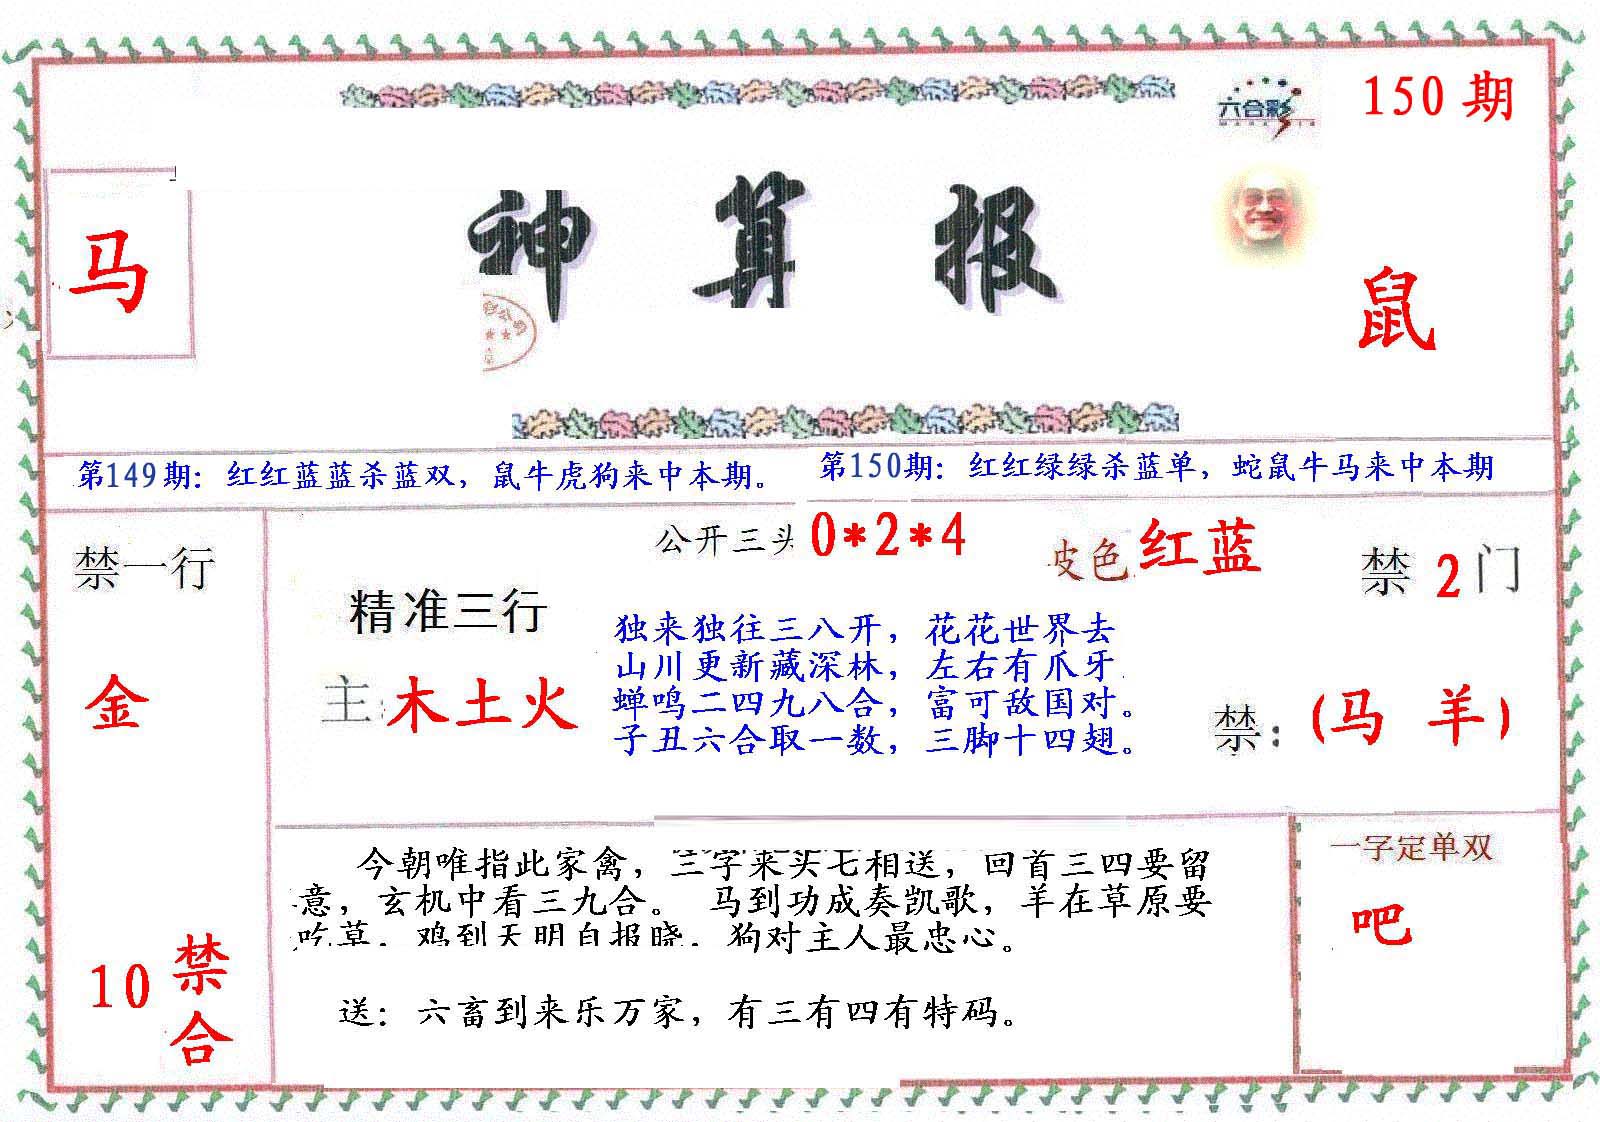 六合彩
150 期
马
神算报
鼠
第149期：红红蓝蓝杀蓝双，鼠牛虎狗来中本期。
第150期：红红绿绿杀蓝单，蛇鼠牛马来中本期
禁一行
金
10 禁
合
公开三头 0*2*4
皮色 红蓝
禁 2 门
精准三行
主：木土火
独来独往三八开，花花世界去
山川更新藏深林，左右有爪牙
蝉鸣二四九八合，富可敌国对。
子丑六合取一数，三脚十四翅。
禁：(马 羊)
今朝唯指此家禽，三字来头七相送，回首三四要留
意，玄机中看三九合。 马到功成奏凯歌，羊在草原要
吃草，鸡到天明自报晓，狗对主人最忠心。
送：六畜到来乐万家，有三有四有特码。
一字定单双
吧